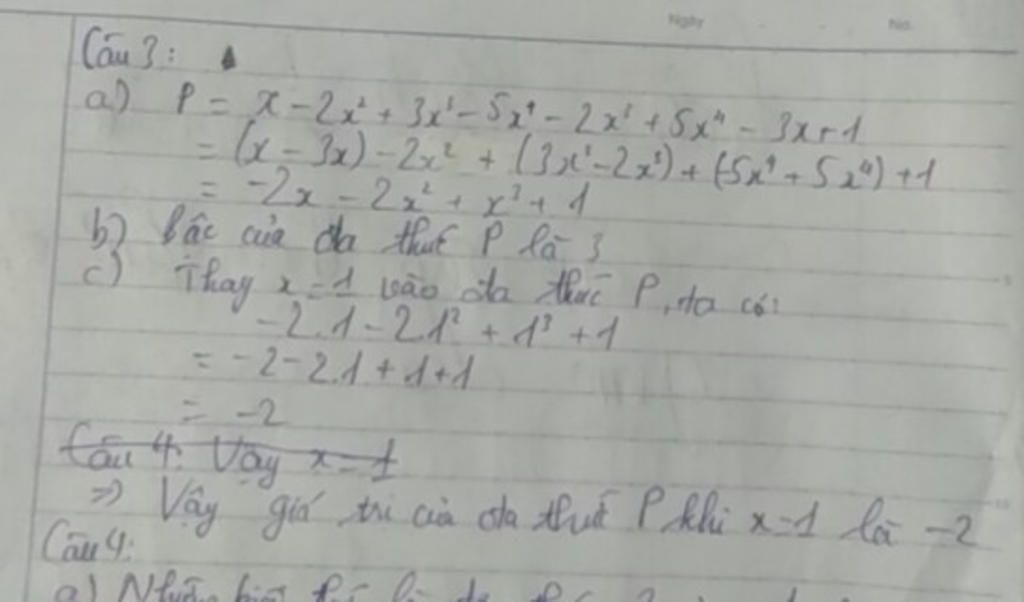 Ngày No.
Câu 3:
a) P = x - 2x² + 3x³ - 5x⁴ - 2x³ + 5x⁴ - 3x + 1
= (x - 3x) - 2x² + (3x³ - 2x³) + (-5x⁴ + 5x⁴) + 1
= -2x - 2x² + x³ + 1
b) Bậc của đa thức P là 3
c) Thay x = 1 vào đa thức P, ta có:
-2.1 - 2.1² + 1³ + 1
= -2 - 2.1 + 1 + 1
= -2
Câu 4: Vậy x = 1
=) Vậy giá trị của đa thức P khi x = 1 là -2
Câu 4:
a) Những biểu